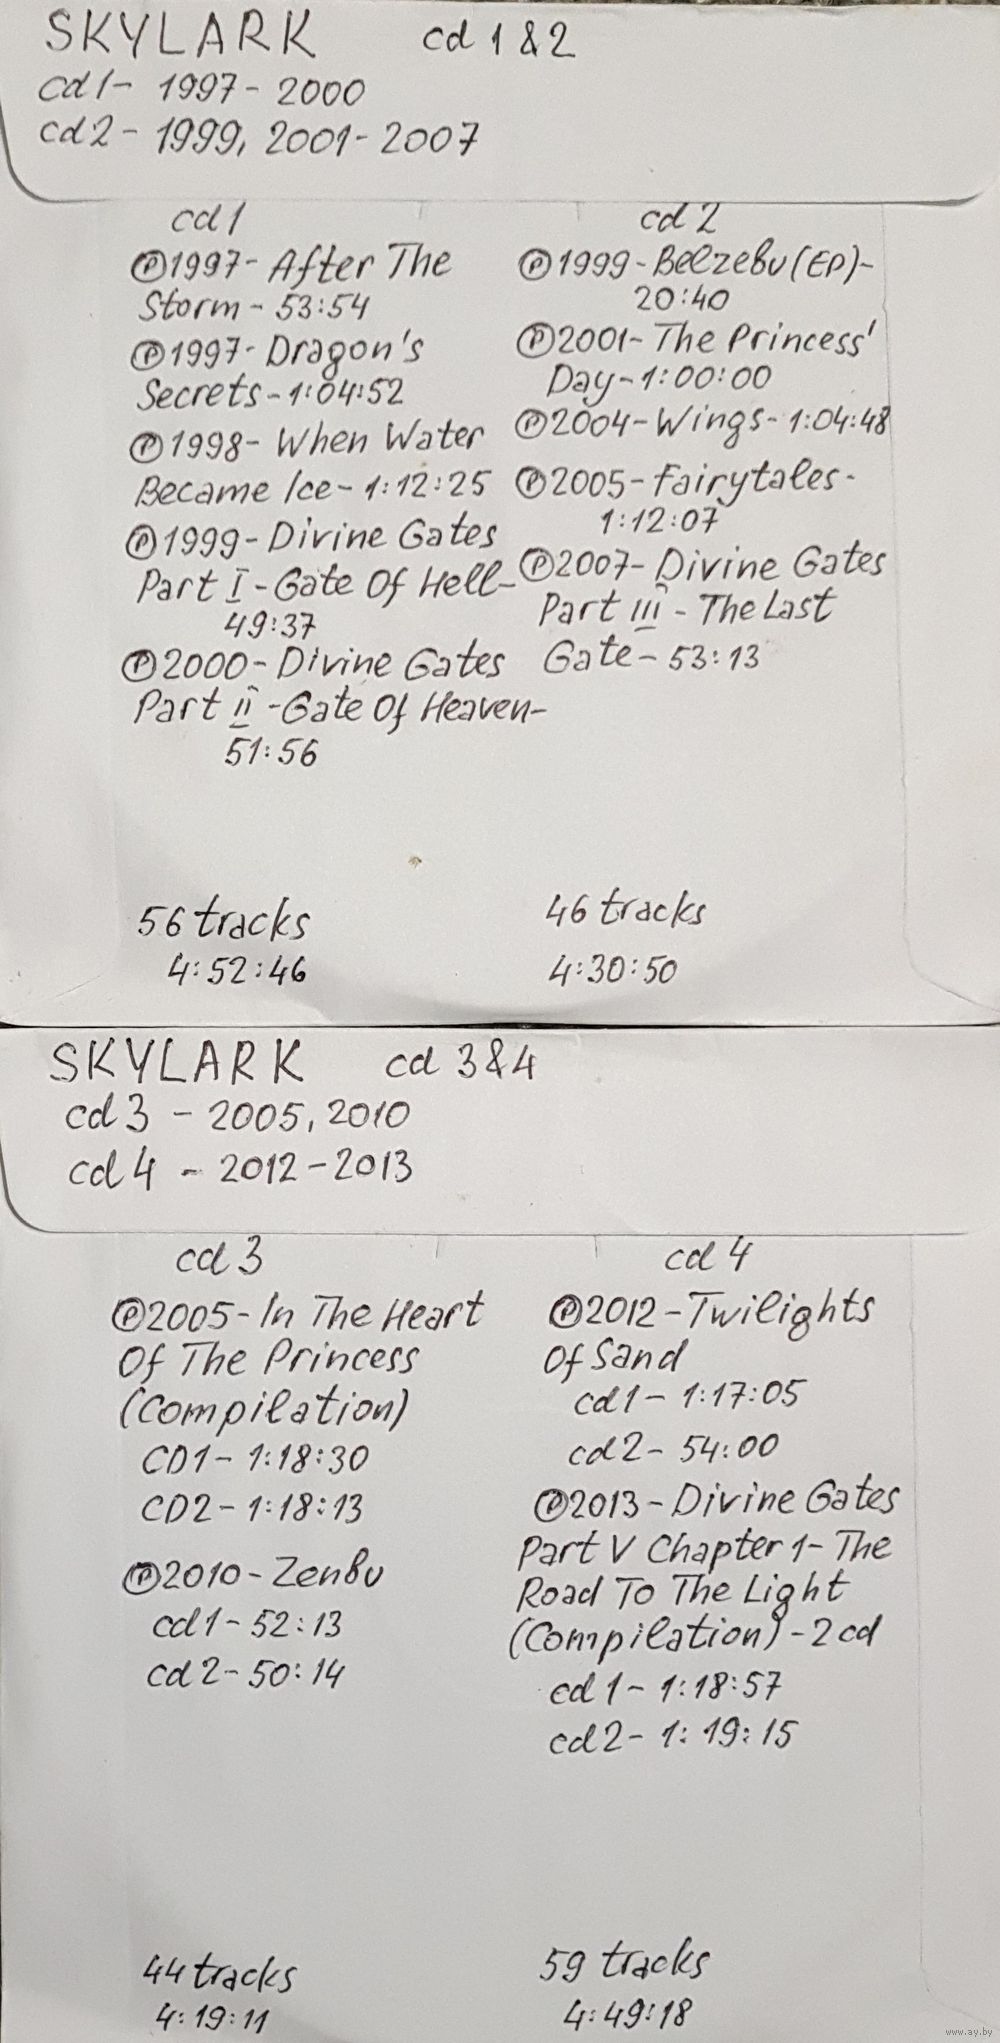 SKYLARK cd 1 & 2
cd 1 - 1997 - 2000
cd 2 - 1999, 2001 - 2007
cd 1
℗1997 - After The
Storm - 53:54
℗1997 - Dragon's
Secrets - 1:04:52
℗1998 - When Water
Became Ice - 1:12:25
℗1999 - Divine Gates
Part I - Gate Of Hell -
49:37
℗2000 - Divine Gates
Part II - Gate Of Heaven -
51:56
56 tracks
4:52:46
cd 2
℗1999 - Belzebu (EP) -
20:40
℗2001 - The Princess'
Day - 1:00:00
℗2004 - Wings - 1:04:48
℗2005 - Fairytales -
1:12:07
℗2007 - Divine Gates
Part III - The Last
Gate - 53:13
46 tracks
4:30:50
SKYLARK cd 3 & 4
cd 3 - 2005, 2010
cd 4 - 2012 - 2013
cd 3
℗2005 - In The Heart
Of The Princess
(Compilation)
CD1 - 1:18:30
CD2 - 1:18:13
℗2010 - Zenbu
cd 1 - 52:13
cd 2 - 50:14
44 tracks
4:19:11
cd 4
℗2012 - Twilights
Of Sand
cd 1 - 1:17:05
cd 2 - 54:00
℗2013 - Divine Gates
Part V Chapter 1 - The
Road To The Light
(Compilation) - 2 cd
cd 1 - 1:18:57
cd 2 - 1:19:15
59 tracks
4:49:18
www.ay.by